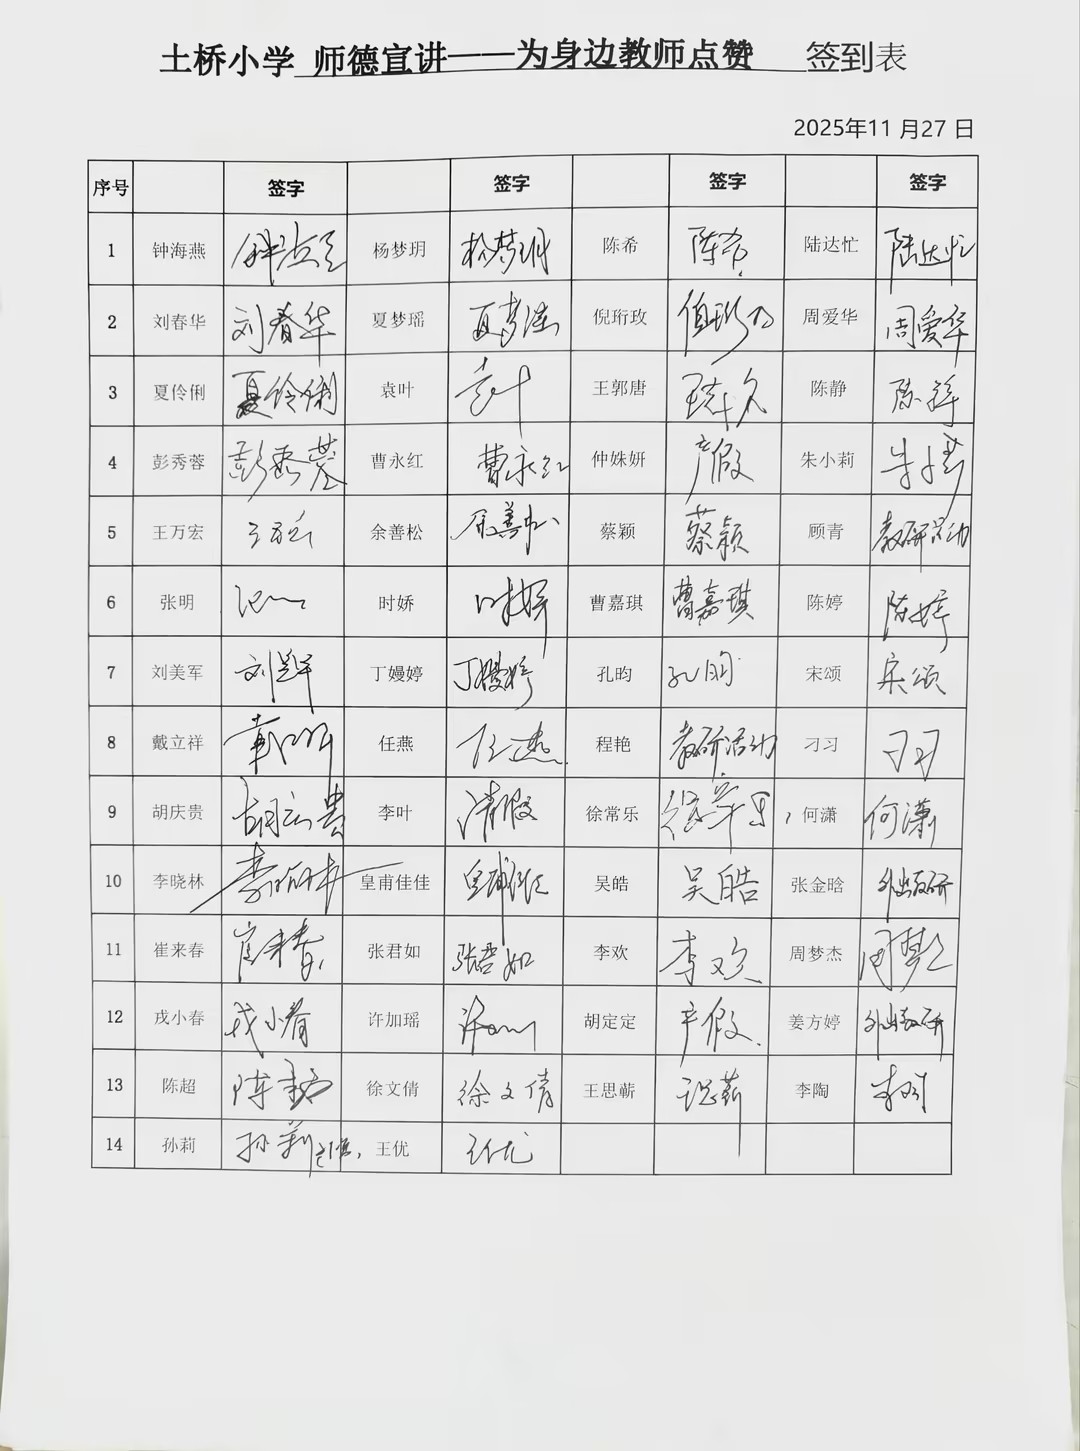 土桥小学 师德宣讲——为身边教师点赞 签到表
2025年11月27日
序号 签字 签字 签字 签字
1 钟海燕 杨梦玥 杨梦玥 陈希 陈希 陆达忙 陆达忙
2 刘春华 刘春华 夏梦瑶 夏梦瑶 倪珩玫 周爱华 周爱华
3 夏伶俐 夏伶俐 袁叶 袁叶 王郭唐 陈静 陈静
4 彭秀蓉 彭秀蓉 曹永红 曹永红 仲姝妍 产假 朱小莉
5 王万宏 余善松 余善松 蔡颖 蔡颖 顾青 教研活动
6 张明 时娇 时娇 曹嘉琪 曹嘉琪 陈婷 陈婷
7 刘美军 刘美军 丁嫚婷 丁嫚婷 孔昀 孔昀 宋颂 宋颂
8 戴立祥 任燕 任燕 程艳 教研活动 刁习 刁习
9 胡庆贵 胡庆贵 李叶 请假 徐常乐 何潇 何潇
10 李晓林 皇甫佳佳 皇甫佳佳 吴皓 吴皓 张金晗 外出教研
11 崔来春 崔来春 张君如 张君如 李欢 李欢 周梦杰
12 戎小春 戎小春 许加瑶 胡定定 产假 姜方婷 外出教研
13 陈超 陈超 徐文倩 徐文倩 王思蕲 李陶
14 孙莉 孙莉 王优 王优